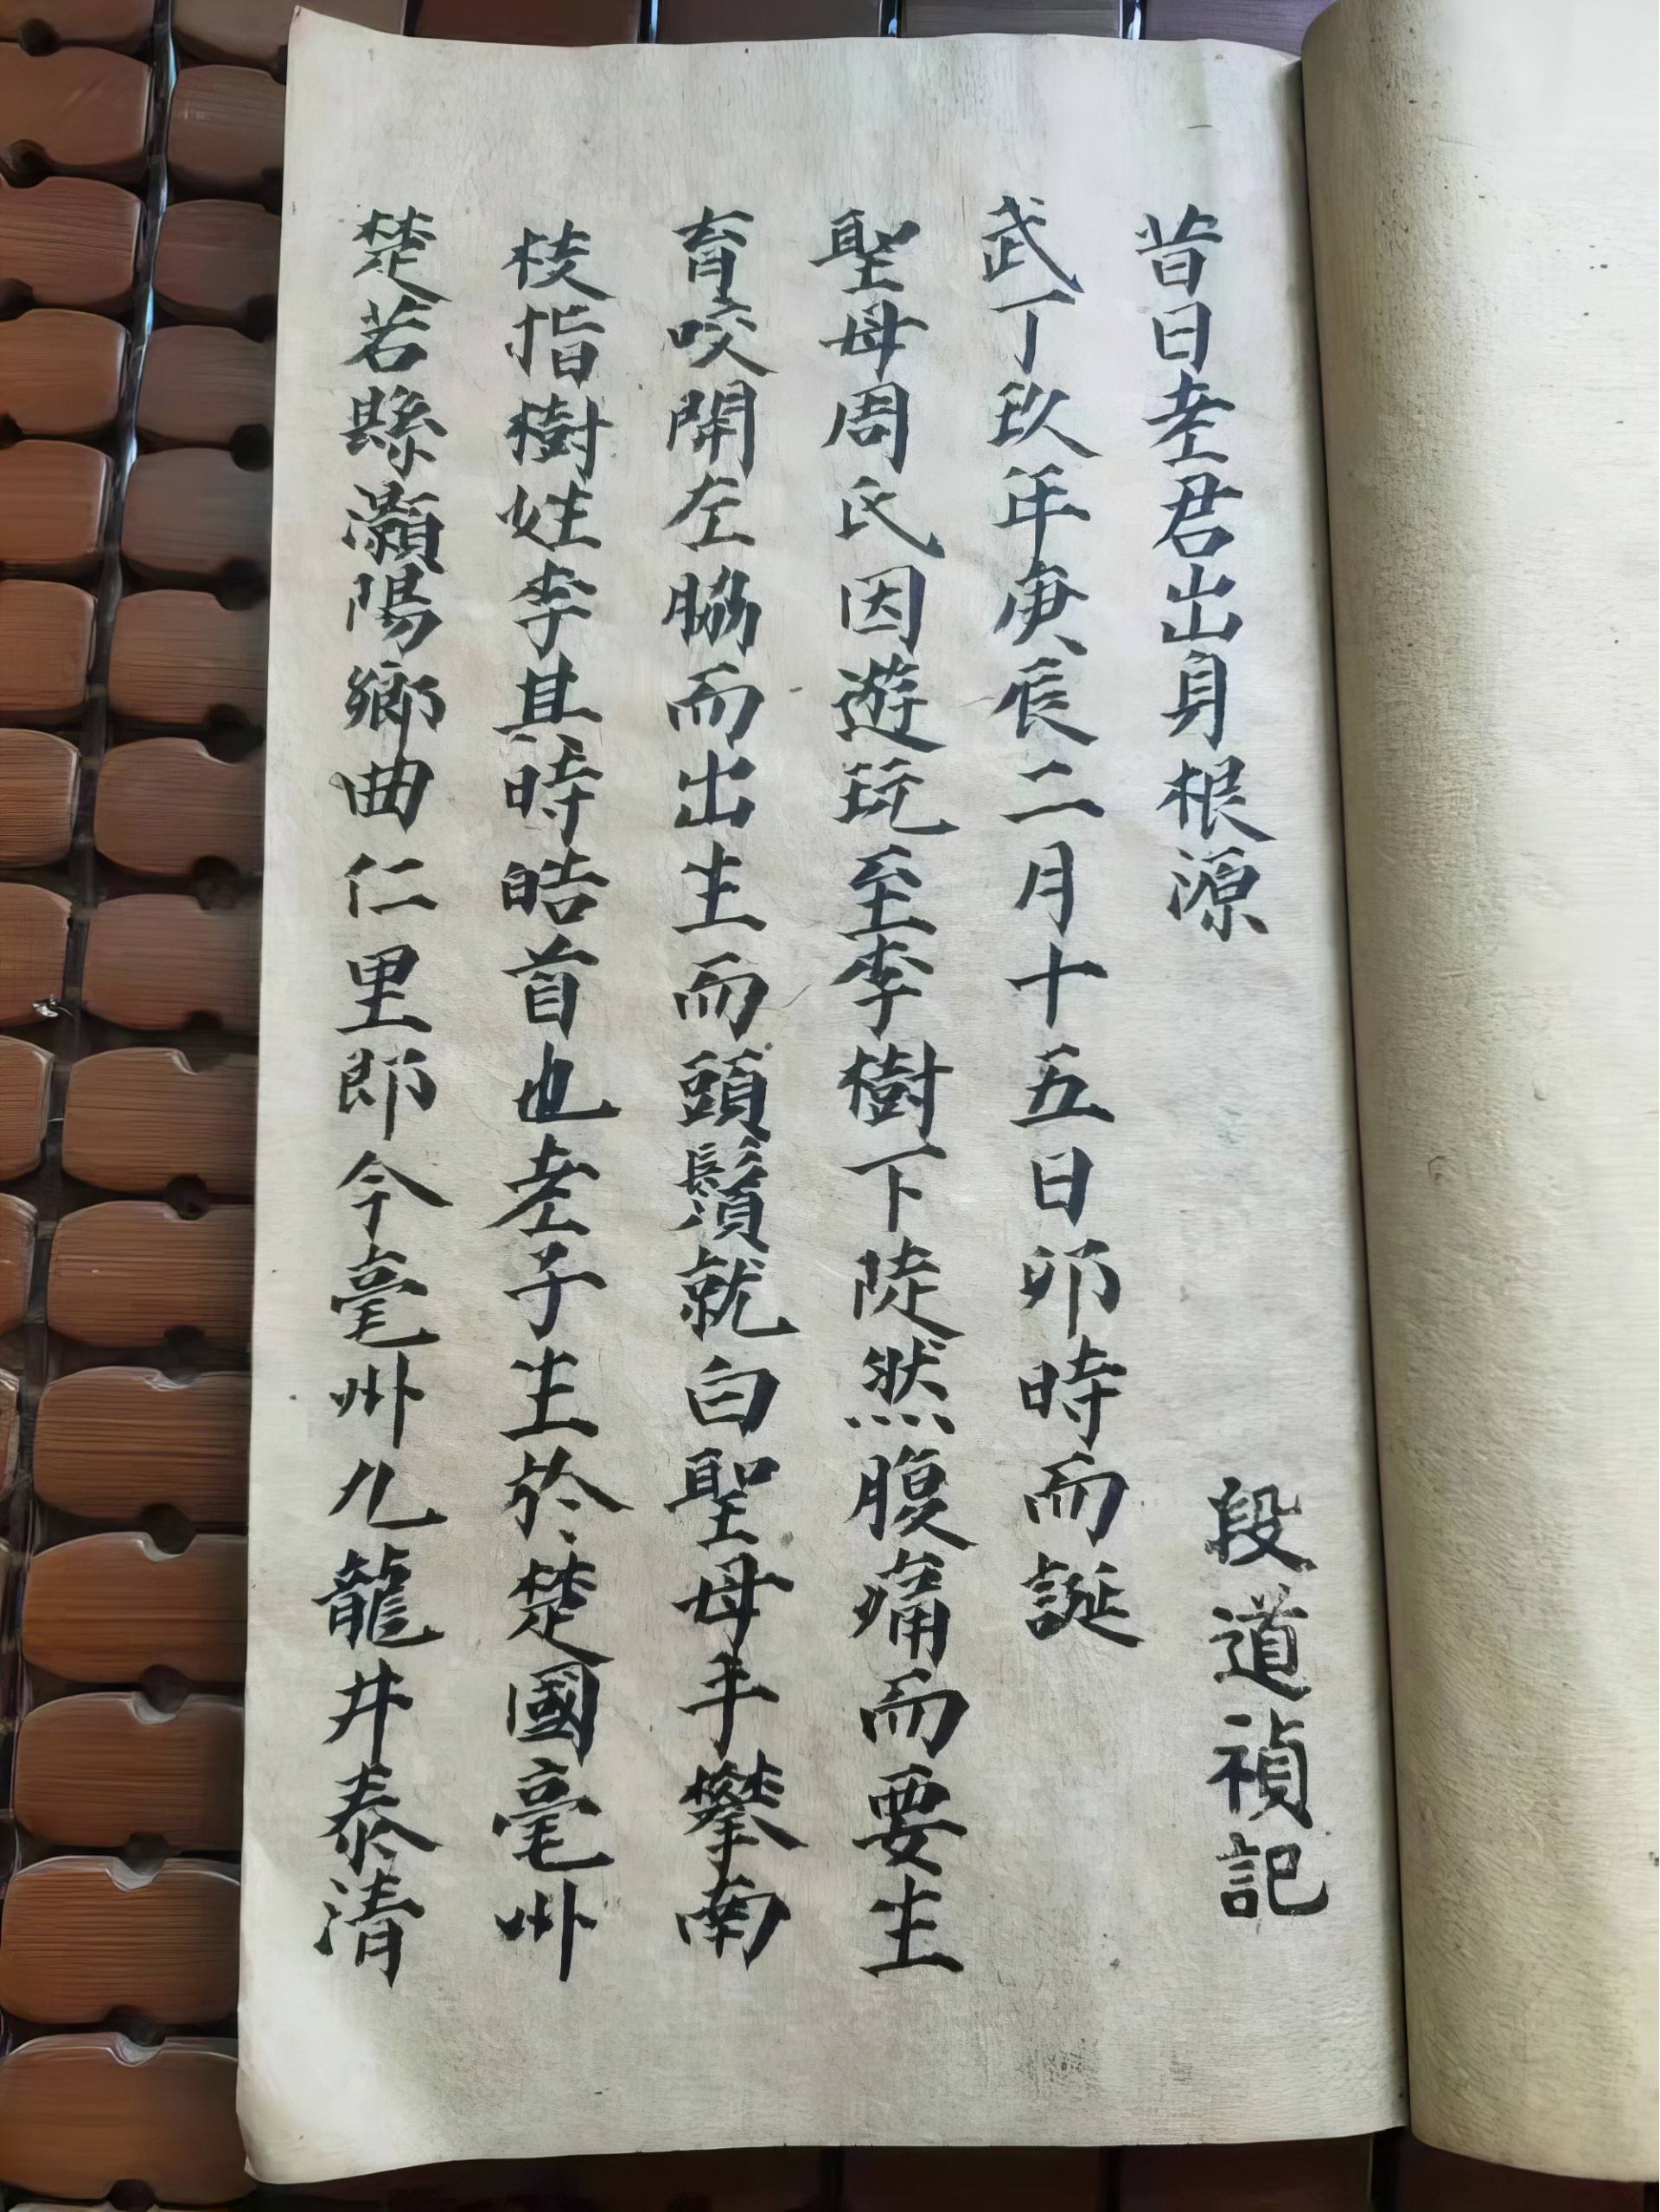 昔日老君出身根源　段道禎記
武丁玖年庚辰二月十五日卯時而誕
聖母周氏因遊玩至李樹下陡然腹痛而要生
育咬開左脇而出生而頭鬚就白聖母手攀南
枝指樹姓李其時皓首也老子生於楚國亳州
楚若縣瀨陽鄉曲仁里郎今亳州九龍井泰清